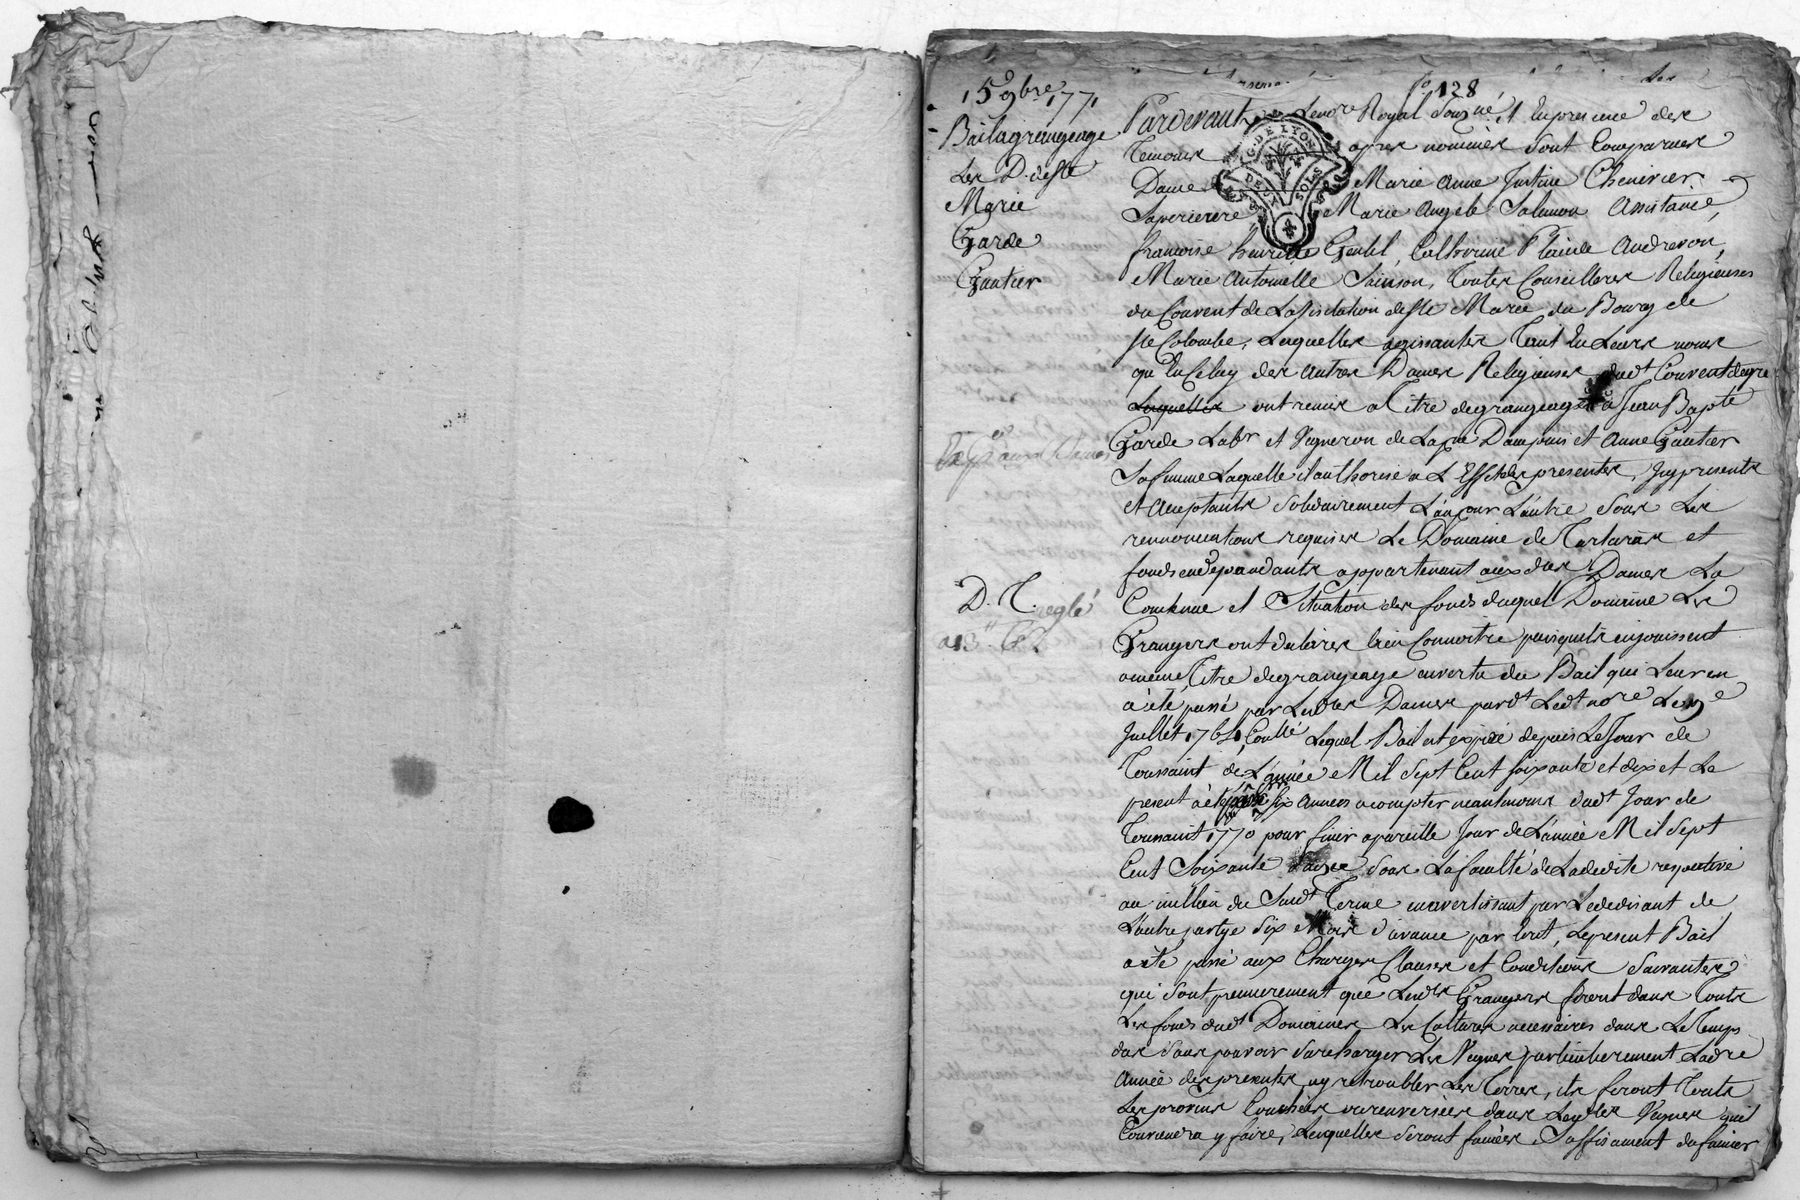 15 9bre 1771
Bail a grangeage
Les D. de Ste
Marie
Garde
Gautier
D. T. reglé
a 13tt
fo. 128
Pardevant Le no.re Royal Sousné, et En presence des
Temoins apres nommés Sont Comparues
Dame Marie Anne Justine Chenevier
Superieure Marie Angele Salomon Assistante,
francoise henriette Gentil, Catherine Plaide Andrevon,
Marie Antoinelle Sainson, Toutes Conseilleres Religieuses
du Couvent de La Visitation de Ste Marie du Bourg de
Ste Colombe, Lesquelles agissantes Tant En Leurs noms
qu'En Celuy des autres Dames Religieuses dudt Couvent de gre
Lesquelles ont remis a Titre de grangeage a Jean Bapte
Garde Labr et Vigneron de La pse Dampuis et Anne Gautier
Sa femme Laquelle il authorise a L'Effet des presentes, Icy presents
et Acceptants Solidairement L'un pour L'autre Sous Les
renonciations requises Le Domaine de Tartaras et
fonds en dependants appartenant aux dtes Dames La
Contenue et Situation des fonds duquel Domaine Les
Grangers ont declarés bien Connoitre puisqu'ils en jouissent
a meme Titre de grangeage en vertu du Bail qui Leur en
à èté passé par Lesdtes Dames pardt Ledt nore Le 9e
Juillet 1764, Conllé Lequel Bail est expiré depuis Le Jour de
Toussaint de L'année Mil Sept Cent Soixante et dix et Le
present à èté six Années a compter neantmoins dudt Jour de
Toussaint 1770 pour finir a pareille Jour de L'année Mil Sept
Cent Soixante Sous La faculté de La dedite respective
au millieu du Susdt Terme en avertissant par Le dedisant de
L'autre partye Six Mois d'avance par ecrit, Le present Bail
a èté passé aux Charges Clauses et Conditions Suivantes
qui Sont premierement que Lesdts Grangers feront dans Touts
Les fonds dudt Domaine Les Cultures necessaires dans Le Temps
dus Sans pouvoir Surcharger Les Vignes particulierement La dre
Année des presentes, ny retroubler Les Terres, ils feront Touts
Les provins Couchées ou renversées dans Lesdtes Vignes qu'il
Conviendra y faire, Lesquelles Seront fumées Suffisament du fumier